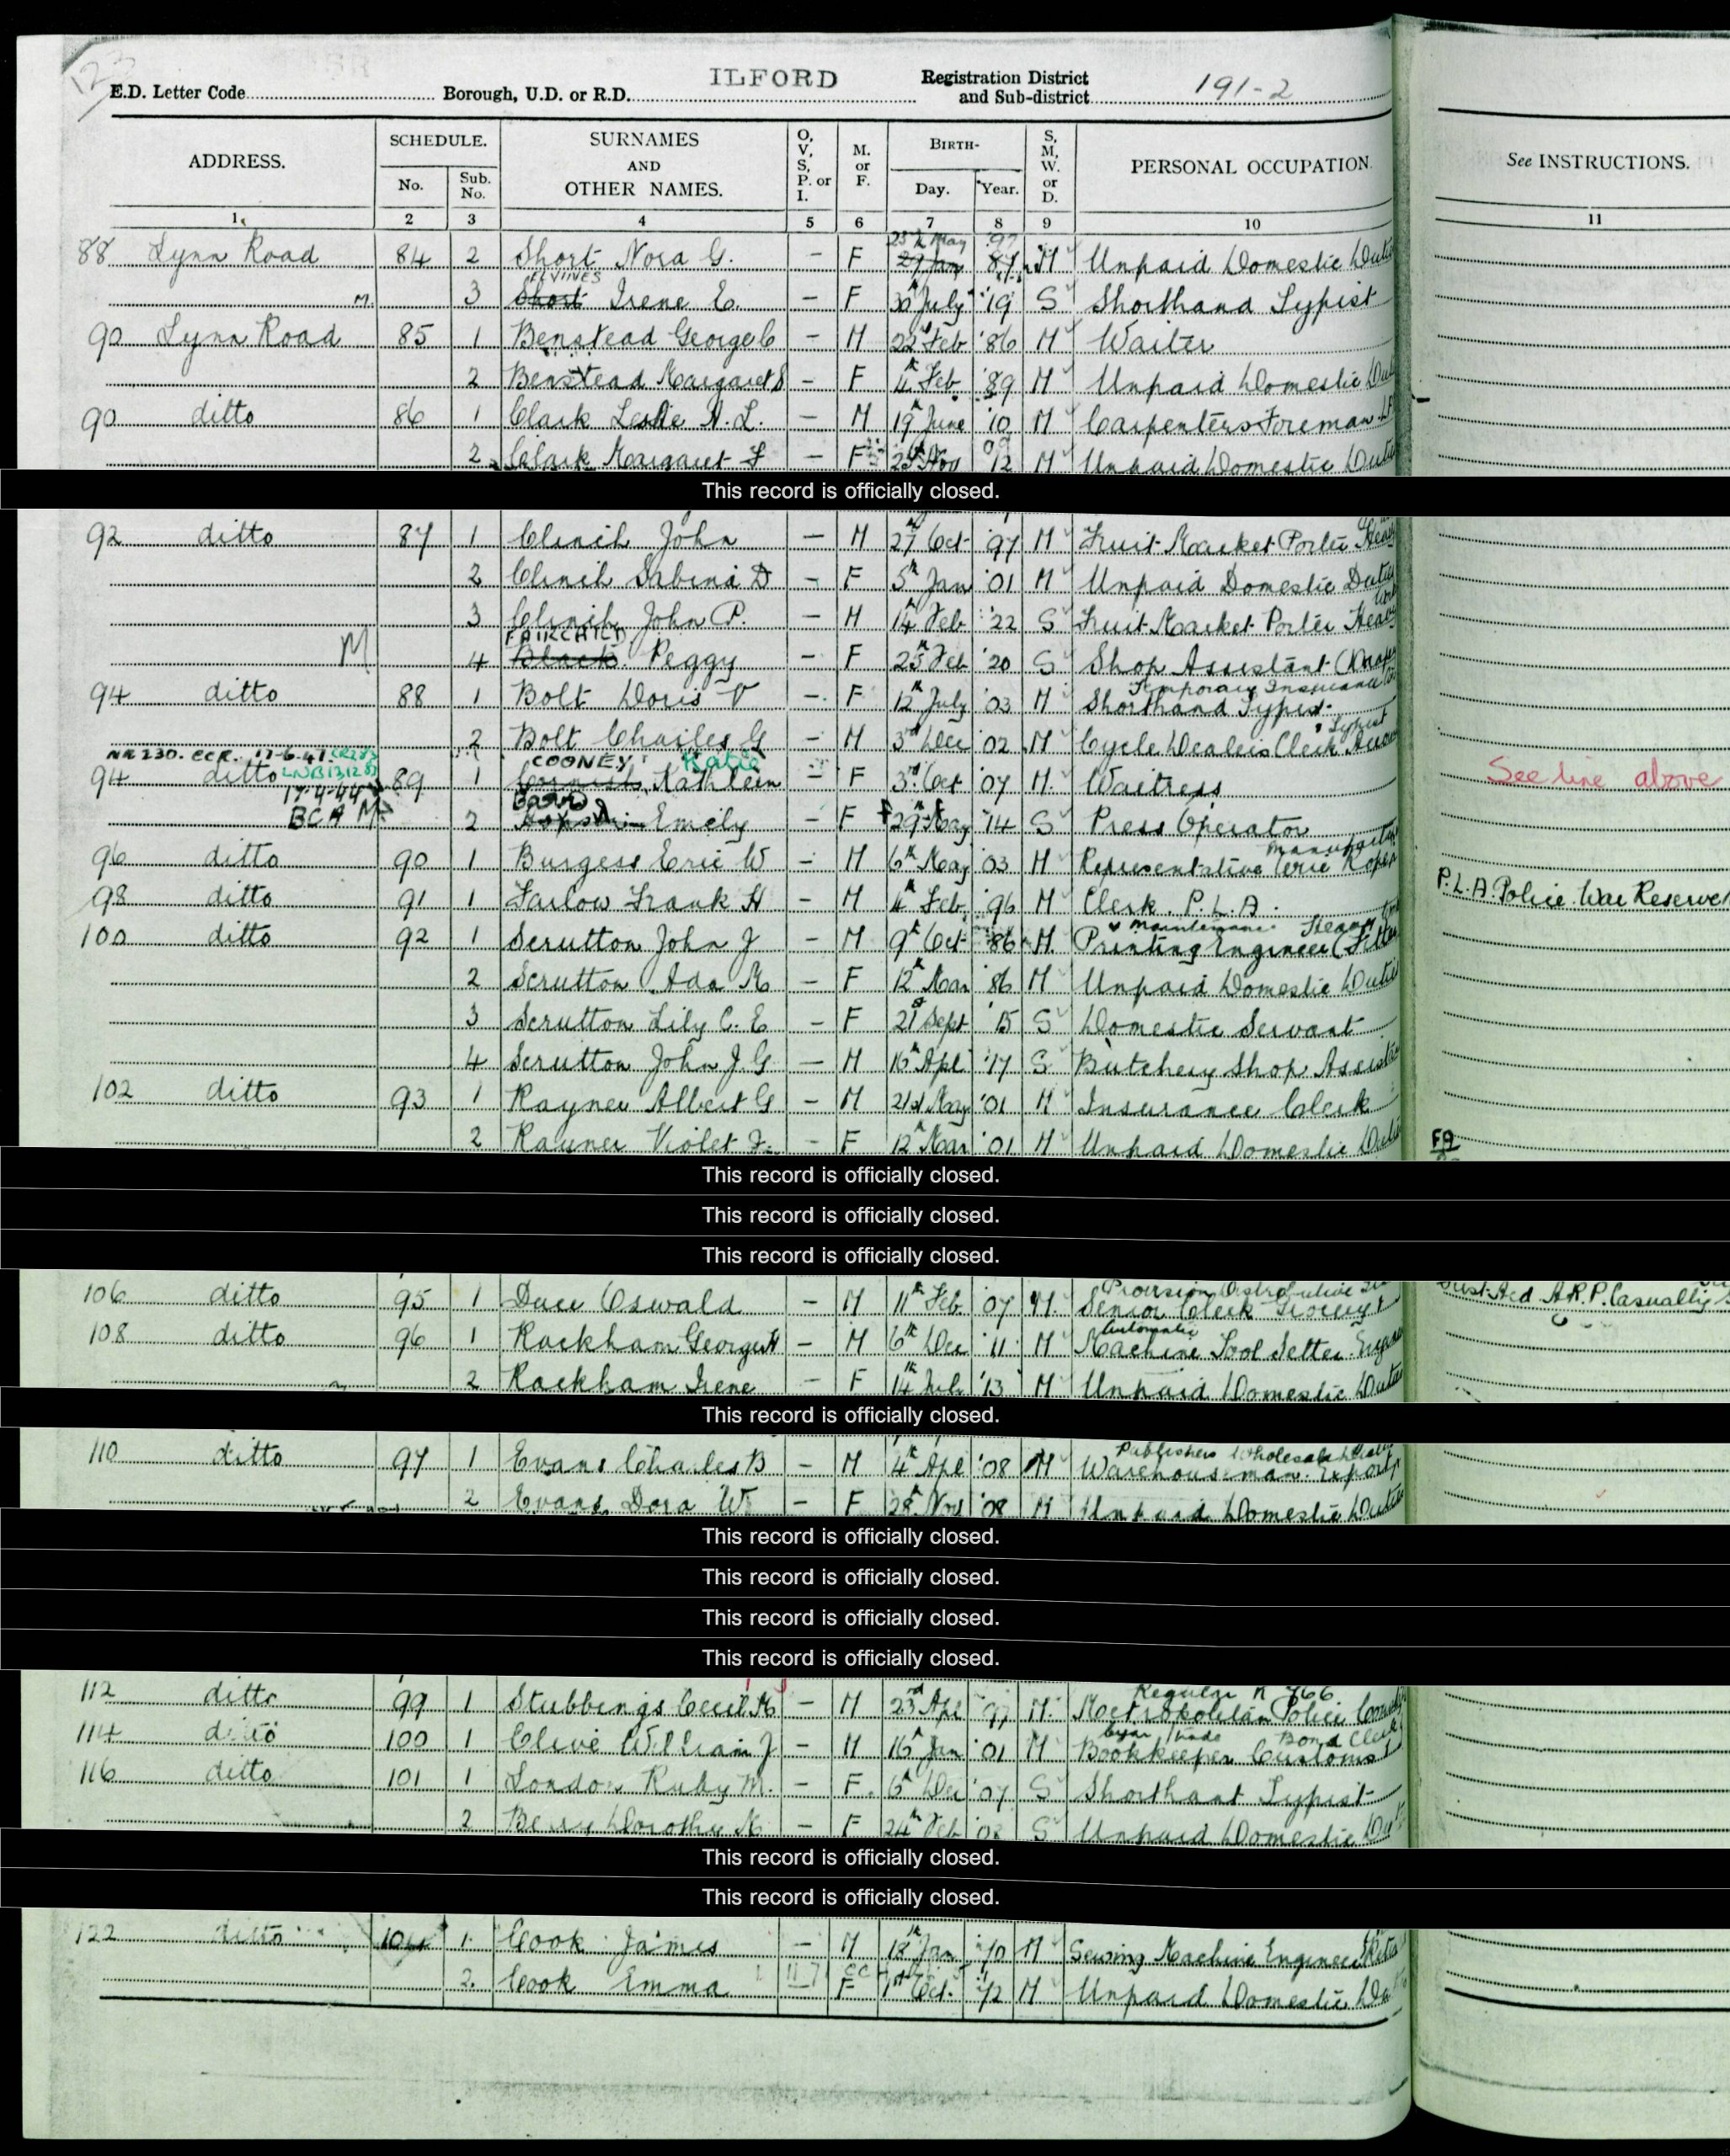 123
E.D. Letter Code Borough, U.D. or R.D. ILFORD Registration District and Sub-district 191-2
ADDRESS. SCHEDULE. No. Sub. No. SURNAMES AND OTHER NAMES. O, V, S, P. or I. M. or F. BIRTH- Day. Year. S, M, W. or D. PERSONAL OCCUPATION. See INSTRUCTIONS.
1 2 3 4 5 6 7 8 9 10 11
25th May '97
88 Lynn Road 84 2 Short Nora G. – F 29 Jan M Unpaid Domestic
ELVINES
M. 3 Short Irene E. – F 30 July '19 S Shorthand Typist
90 Lynn Road 85 1 Benstead George C – M 22 Feb '86 M Waiter
2 Benstead Margaret – F 4th Feb '89 M Unpaid Domestic
90 ditto 86 1 Clark Leslie A. L. – M 19th June '10 M Carpenters Foreman
2 Clark Margaret – F Nov '12 M Unpaid Domestic
This record is officially closed.
92 ditto 87 1 Clinch John – M 27th Oct '97 M Fruit Market Porter
2 Clinch Sabina D – F 5th Jan '01 M Unpaid Domestic
3 Clinch John P. – M 14th Feb '22 S Fruit Market Porter
FAIRCHILD
M 4 Black Peggy – F 25th Feb '20 S Shop Assistant
Temporary Insurance
94 ditto 88 1 Bolt Doris V – F 12th July '03 M Shorthand Typist
Typist
2 Bolt Charles G – M 3rd Dec '02 M Cycle Dealers Clerk
NR230. ECR. 17-6-41 COONEY Katie
94 ditto 89 1 Cornish Kathleen – F 3rd Oct '07 M. Waitress See line above
17-4-44
BCA M 2 Emily – F 29th May '14 S Press Operator
96 ditto 90 1 Burgess Eric W – M 6th May '03 M Representative
98 ditto 91 1 Farlow Frank H – M 4th Feb '96 M Clerk. P.L.A. P.L.A. Police War Reserve
maintenance Heavy
100 ditto 92 1 Scrutton John J – M 9th Oct '86 M Printing Engineer
2 Scrutton Ada M – F 12th Mar '86 M Unpaid Domestic
3 Scrutton Lily C. E – F 21st Sept '15 S Domestic Servant
4 Scrutton John J. G – M 16th Apl '17 S Butchery Shop
102 ditto 93 1 Rayner Albert G – M 21st May '01 M Insurance Clerk
2 Rayner Violet F. – F 12th Mar '01 M Unpaid Domestic
This record is officially closed.
This record is officially closed.
This record is officially closed.
Provision Distributive
106 ditto 95 1 Duce Oswald – M 11th Feb '07 M. Senior Clerk Grocery A.R.P. Casualty
Automatic
108 ditto 96 1 Rackham George H – M 6th Dec '11 M Machine Tool Setter
2 Rackham Irene – F 14th July '13 M Unpaid Domestic
This record is officially closed.
Publishers Wholesale
110 ditto 97 1 Evans Charles B – M 4th Apl '08 M Warehouseman. Export
2 Evans Dora W – F 28th Nov '08 M Unpaid Domestic
This record is officially closed.
This record is officially closed.
This record is officially closed.
This record is officially closed.
Regular
112 ditto 99 1 Stubbings Cecil M – M 23rd Apl '97 M. Metropolitan Police
Bond Clerk
114 ditto 100 1 Clive William J – M 16th Jan '01 M Bookkeeper Customs
116 ditto 101 1 London Ruby M. – F. 6th Dec '07 S Shorthant Typist
2 Berry Dorothy M – F 24th Feb S Unpaid Domestic
This record is officially closed.
This record is officially closed.
122 ditto 104 1. Cook James – M 18th Jan '70 M Sewing Machine Engineer
2. Cook Emma – F 1st Oct. '72 M Unpaid Domestic